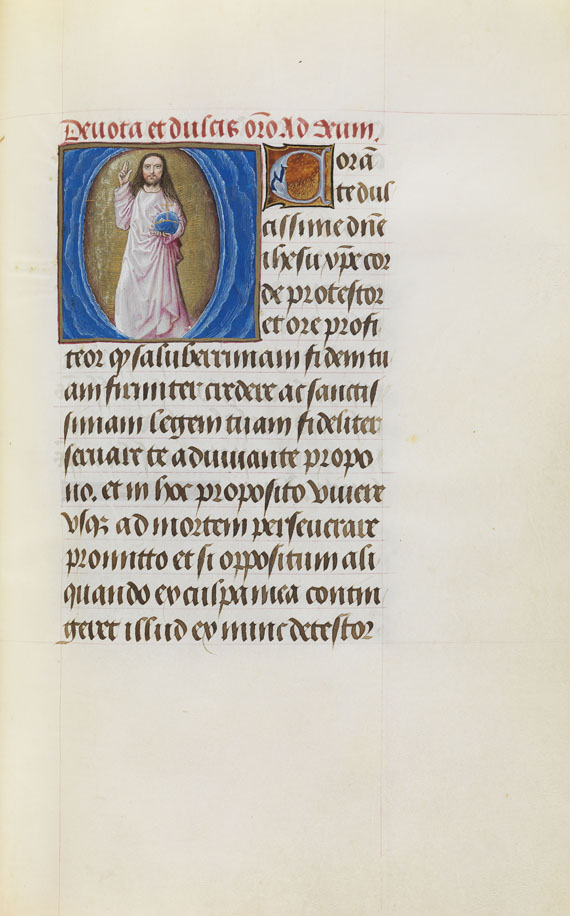 Deuota et dulcis oro Ad Xum.
Corā
te dul
cissime dne
ihesu xpe cor
de protestor
et ore profi
teor q saluberrimam fidem tu
am firmiter credere ac sanctis
simam legem tuam fideliter
seruare te adiuuante propo
no. et in hoc proposito viuere
vsq ad mortem perseuerare
promitto et si oppositum ali
quando ex culpa mea contin
geret illud ex nunc detestor